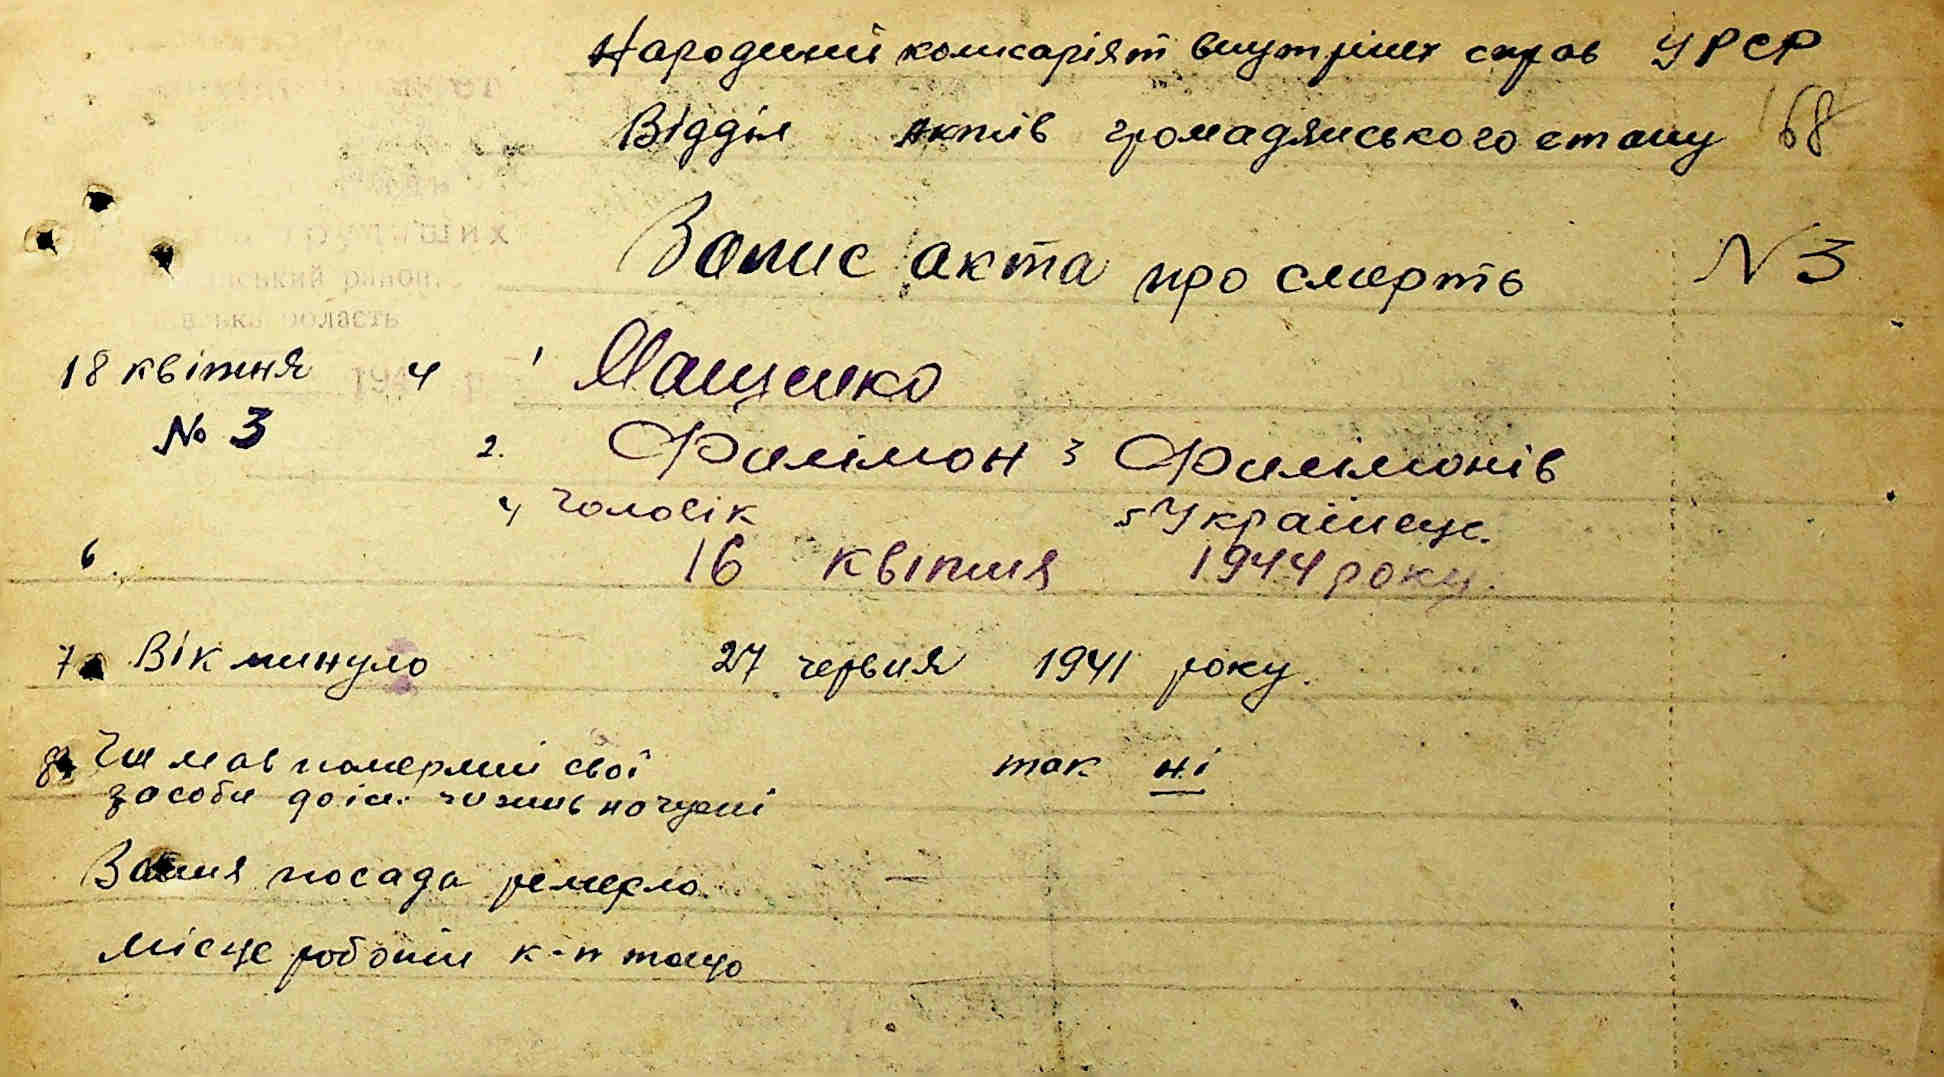 Народний комісаріят внутрішніх справ УРСР
Відділ актів громадянського стану 168
Запис акта про смерть N 3
ський район.
ська область
18 квітня 1944 р 1 Мащенко
№ 3
2. Филімон 3 Филімонів
4 чоловік 5 Українець.
6. 16 квітня 1944 року.
7. Вік минуло 27 червня 1941 року.
8. Чи мав померлий свої так ні
засоби до існ. чи жив на чужі
посада ремесло —
Місце роботи к-п тощо